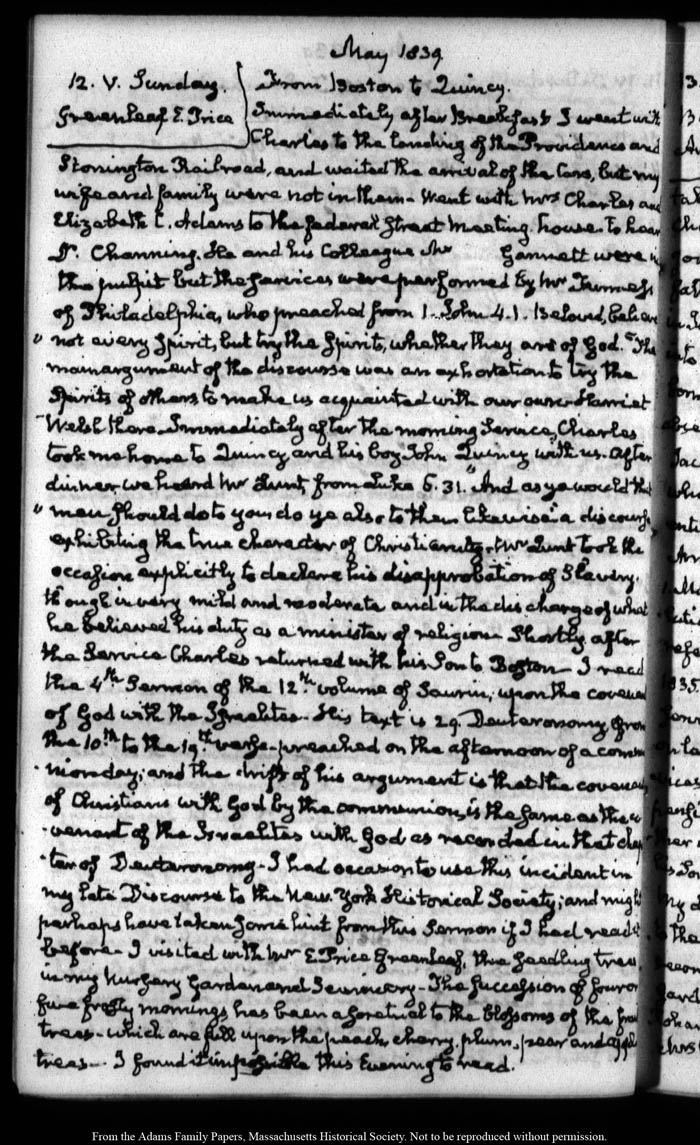 May 1839
12. V. Sunday. From Boston to Quincy.
Greenleaf E. Price Immediately after Breakfast I went with
Charles to the landing of the Providence and
Stonington Railroad, and waited the arrival of the Cars, but my
wife and family were not in them. Went with Mrs Charles and
Elizabeth C. Adams to the Federal Street Meeting-house to hear
Dr. Channing. He and his Colleague Mr Gannett were in
the pulpit but the services were performed by Mr Furness
of Philadelphia, who preached from 1. John 4.1. Beloved, believe
" not every Spirit, but try the Spirits, whether they are of God." The
main argument of the discourse was an exhortation to try the
Spirits of others to make us acquainted with our own. Harriet
Welsh there. Immediately after the morning Service, Charles
took me home to Quincy and his boy John Quincy with us. After
dinner, we heard Mr Lunt, from Luke 6.31. "And as ye would that
" men should do to you, do ye also to them likewise" a discourse
exhibiting the true character of Christianity. Mr Lunt took the
occasion explicitly to declare his disapprobation of Slavery.
though in very mild and moderate and in the discharge of what
he believed his duty as a minister of religion. Shortly after
the Service Charles returned with his Son to Boston. I read
the 4th Sermon of the 12th volume of Saurin, upon the covenant
of God with the Israelites. His text is 29. Deuteronomy, from
the 10th to the 19th verse. preached on the afternoon of a commu
nion day; and the drift of his argument is that the covenant
of Christians with God by the communion, is the same as the co
venant of the Israelites with God as recorded in that chap
ter of Deuteronomy. I had occasion to use this incident in
my late Discourse to the New-York Historical Society; and might
perhaps have taken some hint from this Sermon if I had read it
before. I visited with Mr E. Price Greenleaf, the seedling trees
in my Nursery Garden and Seminary. The succession of four or
five frosty mornings has been a foretaste to the blossoms of the fruit
trees. which are full upon the peach, cherry, plum, pear and apple
trees. I found it impossible this Evening to read.
From the Adams Family Papers, Massachusetts Historical Society. Not to be reproduced without permission.